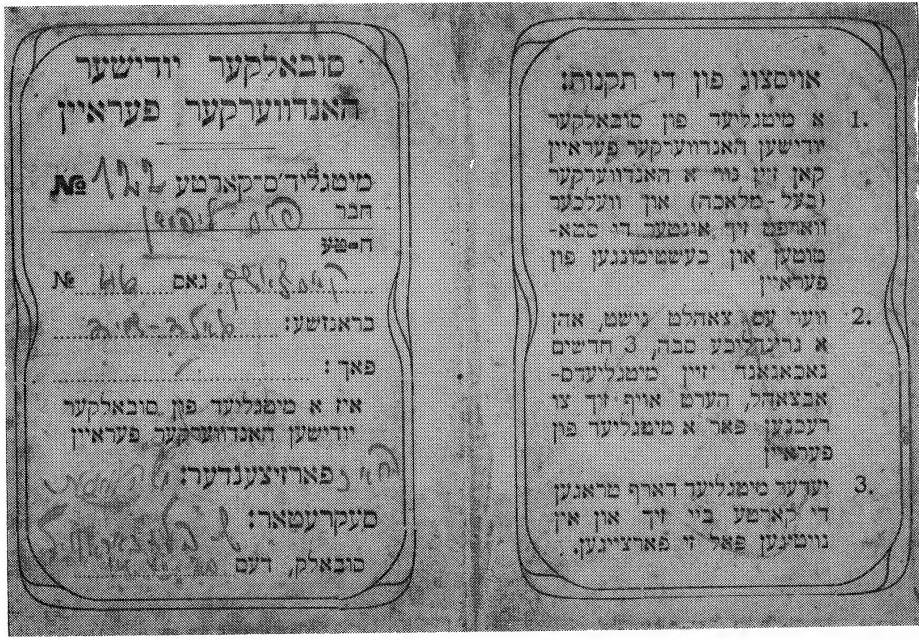 סובאלקער יודישער
האנדווערקער פעראיין
מיטגליד'ס־קארטע 122 №
חבר
ח־טע
גאס №
בראנזשע:
פאך:
איז א מיטגליעד פון סובאלקער
יודישען האנדווערקער פעראיין
פארזיצענדער:
סעקרעטאר:
סובאלק, דעם
אויסצוג פון די תקנות:
1. א מיטגליעד פון סובאלקער
יודישען האנדווערקער פעראיין
קאן זיין נור א האנדווערקער
(בעל-מלאכה) און וועלכער
ווארפט זיך אונטער די סטא-
טוטען און בעשטימונגען פון
פעראיין
2. ווער עס צאהלט נישט, אהן
א גרינדליכע סבה, 3 חדשים
נאכאנאנד זיין מיטגליעדס-
אבצאהל, הערט אויף זיך צו
רעכנען פאר א מיטגליעד פון
פעראיין
3. יעדער מיטגליעד דארף טראגען
די קארטע ביי זיך און אין
נויטיגען פאל זי פארצייגען.